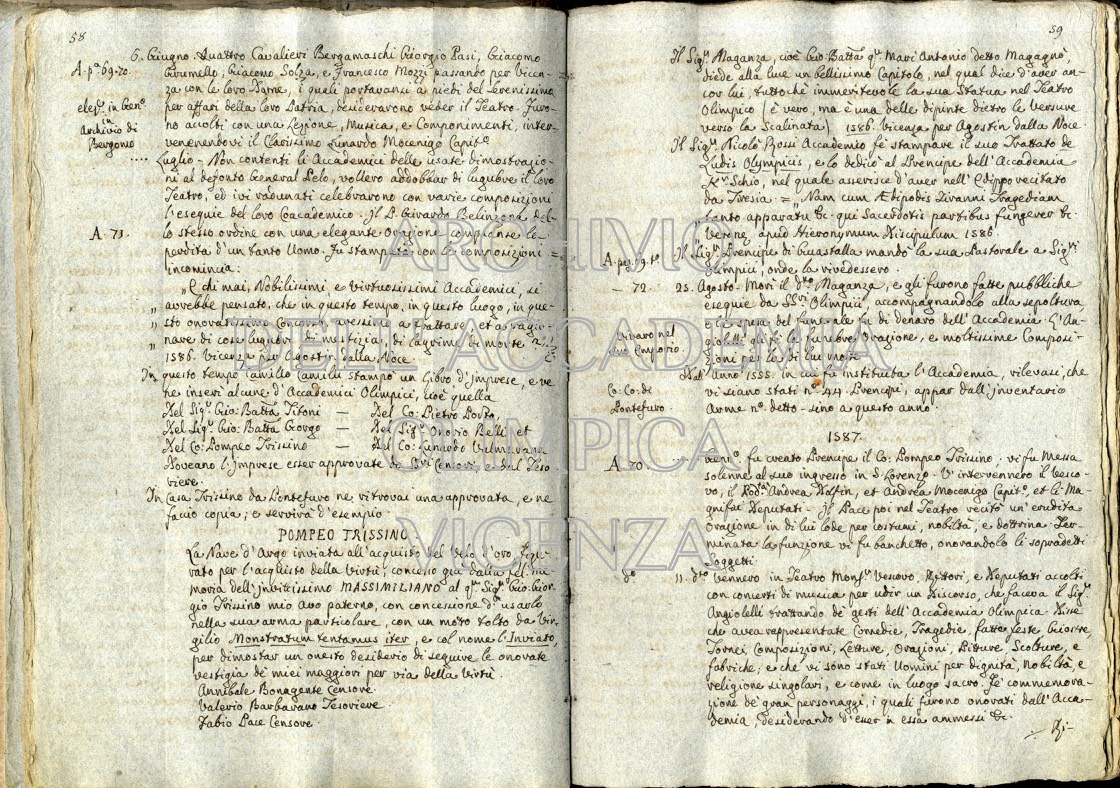 58
6. Giugno. Quattro Cavalieri Bergamaschi Giorgio Pasi, Giacomo
A. pª 69. 70. Grumello, Giacomo Solza, e Francesco Mozzi passando per Vicen-
za con le loro Dame, i quali portavansi a piedi del Serenissimo
per affari della loro Patria, desiderarono veder il Teatro. Furo-
no accolti con una Lezione, Musica, e Componimenti, inter-
in
Archivio di
Bergomo
venendovi il Clarissimo Lunardo Mocenigo Capitº
.... Luglio - Non contenti li Accademici delle usate dimostrazio-
ni al defonto General Pelo, vollero addobbar di lugubre il loro
Teatro, ed ivi radunati celebrarono con varie composizioni
l'esequie del loro Coacademico. Il P. Girardo Belinzona del-
A. 71. lo stesso ordine con una elegante Orazione compianse la
perdita d'un tanto Uomo. Fu stampata con le composizioni =
incomincia:
„ E chi mai, Nobilissimi e Virtuosissimi Accademici, si
„ avrebbe pensato, che in questo tempo, in questo luogo, in que-
„ sto onoratissimo Concorso, avessimo a trattare, et a ragio-
„ nare di cose lugubri, di mestizia, di lagrime, di morte
„ 1586. Vicenza per Agostin dalla Noce.
In questo tempo Camillo Camilli stampò un Libro d'Imprese, e ve
ne inserì alcune d'Accademici Olimpici, cioè quella
Del Sigr Gio: Batta Titoni — Del Co: Pietro Porto,
Del Sigr Gio: Batta Georgo — Del Sigr Onorio Belli, et
Del Co: Pompeo Trissino — Del Co: Lunardo Valmarana
Doveano l'Imprese esser approvate da Censori, e dal Teso
riere.
In Casa Trissino da Pontefuro ne ritrovai una approvata, e ne
faccio copia, e servirà d'esempio.
POMPEO TRISSINO
La Nave d'Argo inviata all'acquisto del Velo d'oro, figu-
rato per l'acquisto della Virtù, concesso già dalla fel: me-
moria dell'Invittissimo MASSIMILIANO al qm Sigr Gio: Gior-
gio Trissino mio Avo paterno, con concessione d' usarlo
nella sua arma particolare, con un moto tolto da Vir-
gilio Monstratum tentamus iter, e col nome l'Inviato,
per dimostrar un onesto desiderio di seguire le onorate
vestigia de' miei maggiori per via della Virtù.
Annibale Bonagente Censore
Valerio Barbarano Tesoriere
Fabio Pace Censore.
59
Il Sigr Maganza, cioè Gio: Batta qm Marc'Antonio detto Magagnò,
diede alla luce un bellissimo Capitolo, nel qual dice d'aver an-
cor lui, tuttochè immeritevole la sua Statua nel Teatro
Olimpico (è vero, ma è una delle dipinte dietro le Versure
verso la Scalinata) 1586. Vicenza per Agostin dalla Noce.
Il Sigr Nicolò Rossi Accademico fè stampare il suo Trattato de
Ludis Olympicis, e lo dedicò al Prencipe dell'Accademia
Kr Schio, nel quale asserisce d'aver nell'Edippo recitato
da Tiresia: = „ Nam cum Ædipodis Tiranni Tragediam
tanto apparatu &c. qui Sacerdotis partibus fungerer &c.
Veronæ, apud Hieronymum Discipulum 1586.
A. pag. 69. tº Il Sigr Prencipe di Guastalla mandò la sua Pastorale a Sigri
Olimpici, onde la rivedessero.
— 72. 25. Agosto. Morì il dto Maganza, e gli furono fatte pubbliche
esequie da SSri Olimpici, accompagnandolo alla sepoltura
e la spesa del funerale fu di denaro dell'Accademia. L'An-
giolelli gli fè la funebre Orazione, e moltissime Composi-
zioni per la di lui morte.
Vivaro nel
suo Emporio.
Dall'Anno 1555. in cui fu instituita l'Accademia, rilevasi, che
Co: Co: di
Pontefuro.
vi siano stati nº 44. Prencipi, appar dall'inventario
Arme nº detto - sino a questo anno.
1587.
A. 70. fu creato Prencipe il Co: Pompeo Trissino. vi fu Messa
solenne al suo ingresso in S. Lorenzo. V'intervennero il Vesco-
vo, il Podtà Andrea Dolfin, et Andrea Mocenigo Capitº, et li Ma-
gnifici Deputati. Il Pace poi nel Teatro recitò un'erudita
Orazione in di lui lode per costumi, nobiltà, e dottrina. Ter-
minata la funzione vi fu banchetto, onorandolo li sopradetti
Soggetti.
dº 11. dto Vennero in Teatro Monsr Vescovo, Rettori, e Deputati accolti
con concerti di musica per udir un Discorso, che faceva il Sigr
Angiolelli trattando de' gesti dell'Accademia Olimpica. Disse
che avea rappresentate Comedie, Tragedie, fatte feste, Giostre,
Tornei, Composizioni, Letture, Orazioni, Pitture, Scolture, e
fabriche, e che vi sono stati Uomini per dignità, nobiltà, e
religione singolari, e come in luogo sacro. Fe' commemora-
zione de' gran personaggi, i quali furono onorati dall'Acca-
demia, desiderando d'esser in essa ammessi &c.
ARCHIVIO
DELL'ACCADEMIA
OLIMPICA
VICENZA